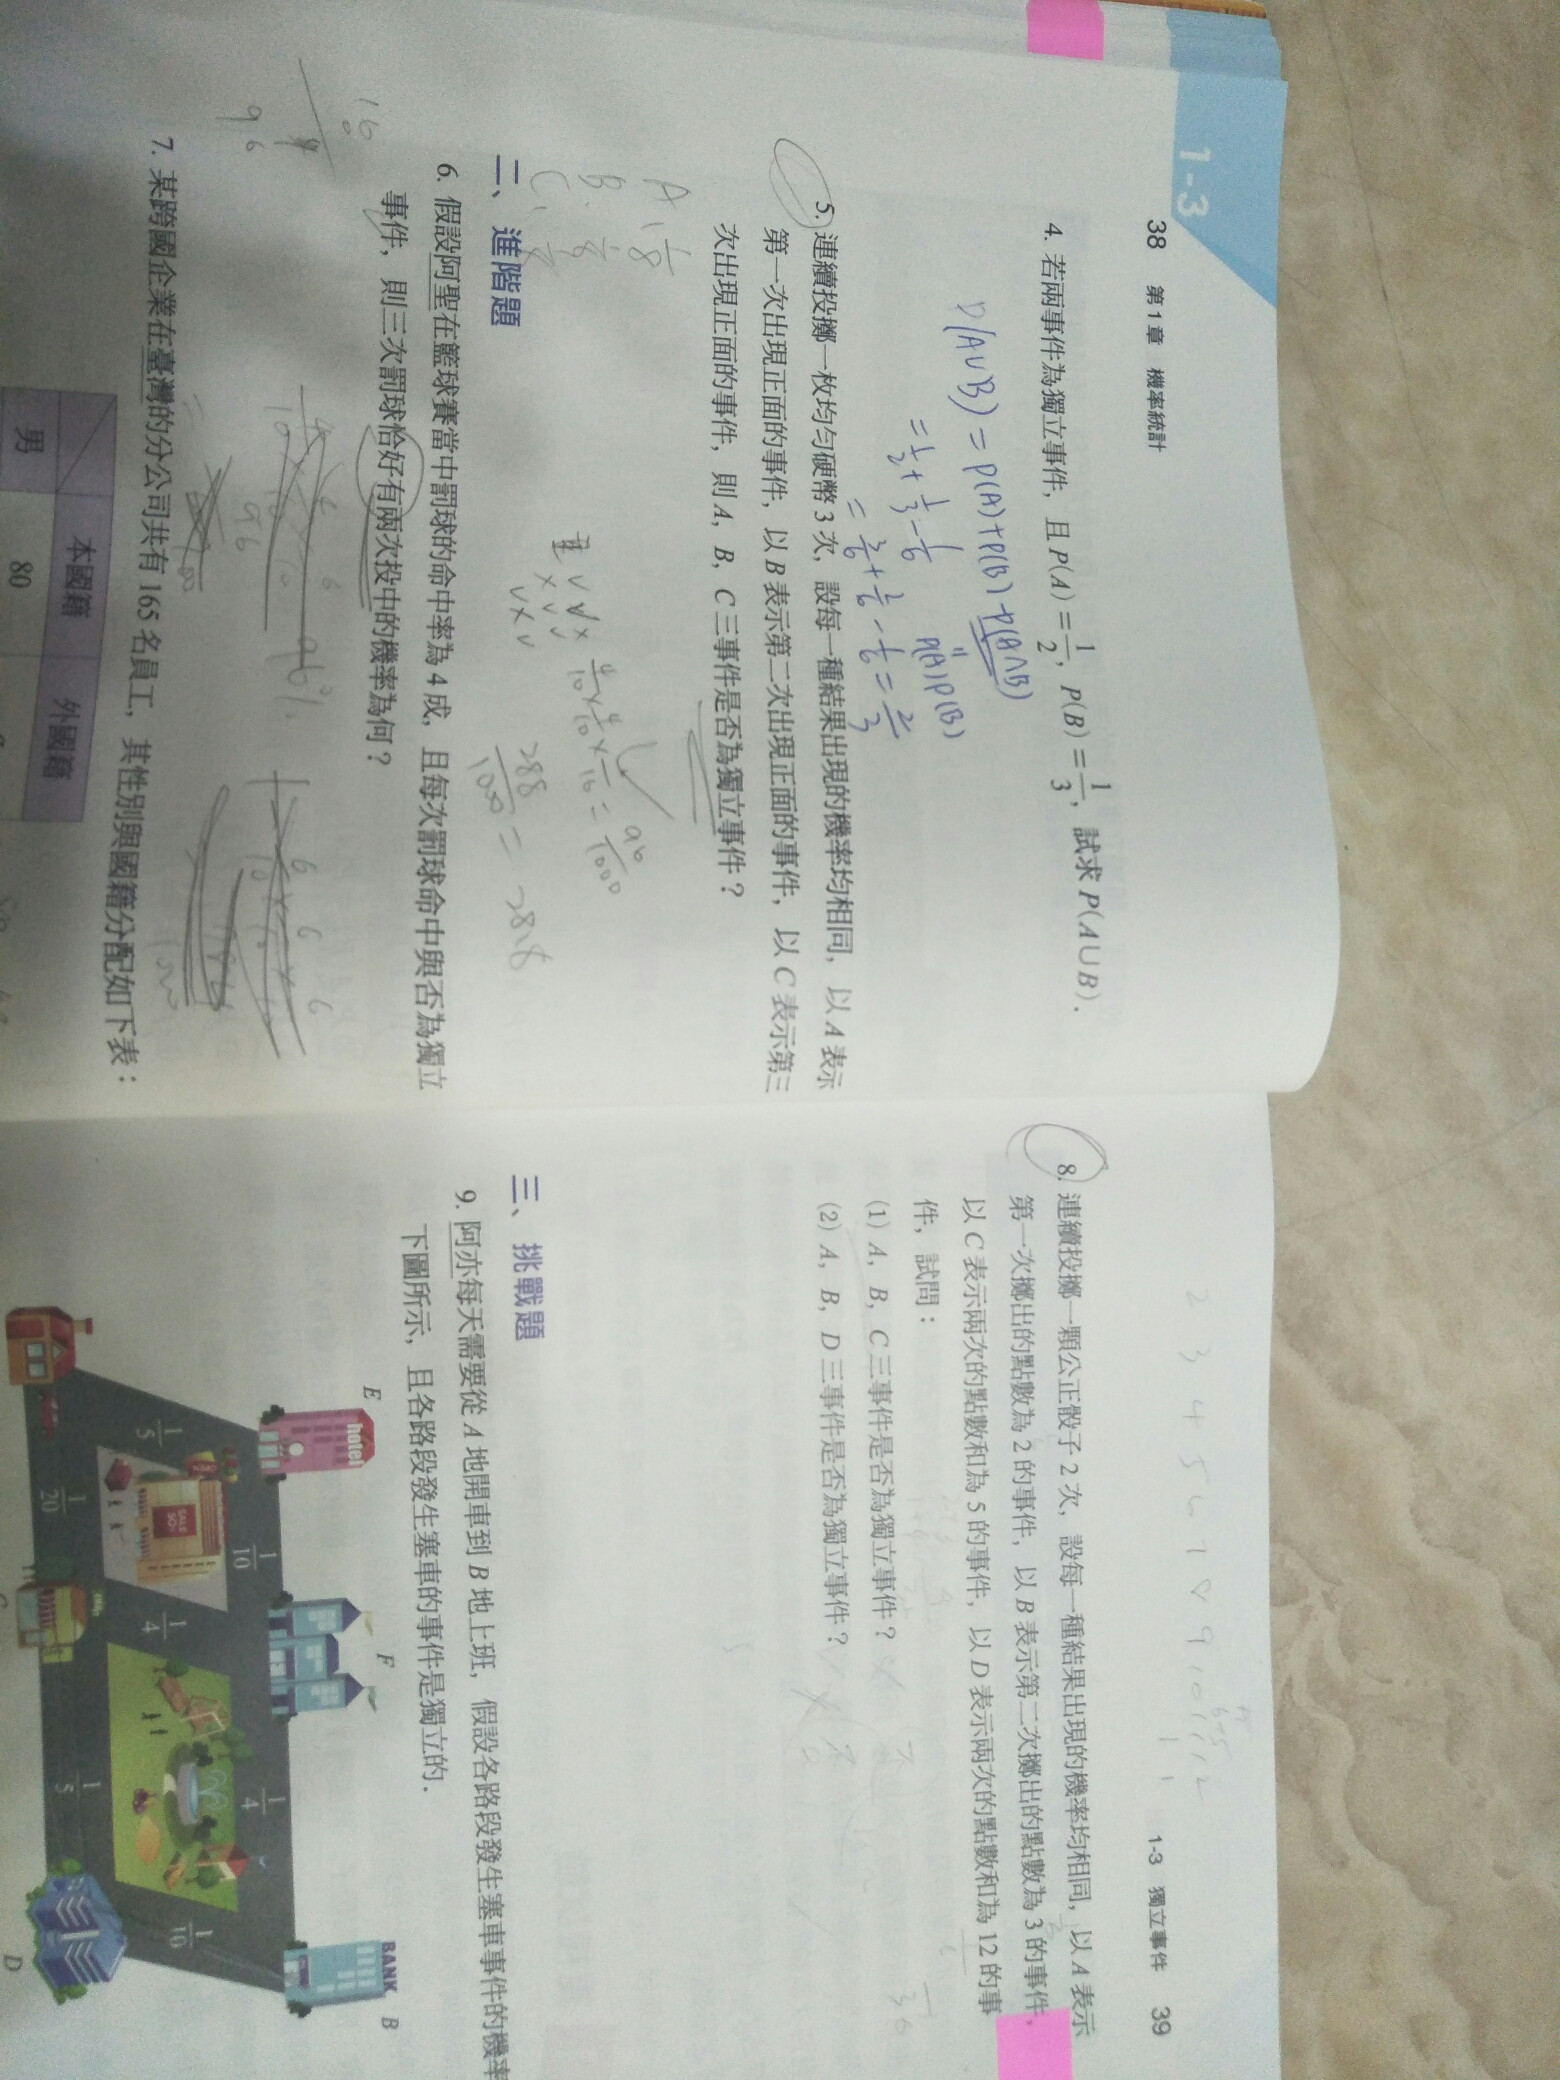 1-3
38 第1章 機率統計
4. 若兩事件為獨立事件，且 P(A)=1/2，P(B)=1/3，試求 P(A∪B).
P(A∪B) = P(A)+P(B)-P(A∩B)
P(A)P(B)
= 1/2 + 1/3 - 1/6
= 3/6 + 2/6 - 1/6 = 2/3
5. 連續投擲一枚均勻硬幣 3 次，設每一種結果出現的機率均相同，以 A 表示
第一次出現正面的事件，以 B 表示第二次出現正面的事件，以 C 表示第三
次出現正面的事件，則 A，B，C 三事件是否為獨立事件？
A, 1/8
B. 1/8
C,
二、進階題
288/1000 = 28.8
6. 假設阿聖在籃球賽當中罰球的命中率為 4 成，且每次罰球命中與否為獨立
事件，則三次罰球恰好有兩次投中的機率為何？
96%
7. 某跨國企業在臺灣的分公司共有 165 名員工，其性別與國籍分配如下表：
本國籍 外國籍
男 80
1-3 獨立事件 39
2 3 4 5 6 7 8 9 10 11 12
8. 連續投擲一顆公正骰子 2 次，設每一種結果出現的機率均相同，以 A 表示
第一次擲出的點數為 2 的事件，以 B 表示第二次擲出的點數為 3 的事件，
以 C 表示兩次的點數和為 5 的事件，以 D 表示兩次的點數和為 12 的事
件，試問：
(1) A，B，C 三事件是否為獨立事件？
(2) A，B，D 三事件是否為獨立事件？
三、挑戰題
9. 阿亦每天需要從 A 地開車到 B 地上班，假設各路段發生塞車事件的機率
下圖所示，且各路段發生塞車的事件是獨立的.
E F B
hotel BANK
1/10 1/4
1/5 1/4 1/10
1/20 1/5
SALE
D